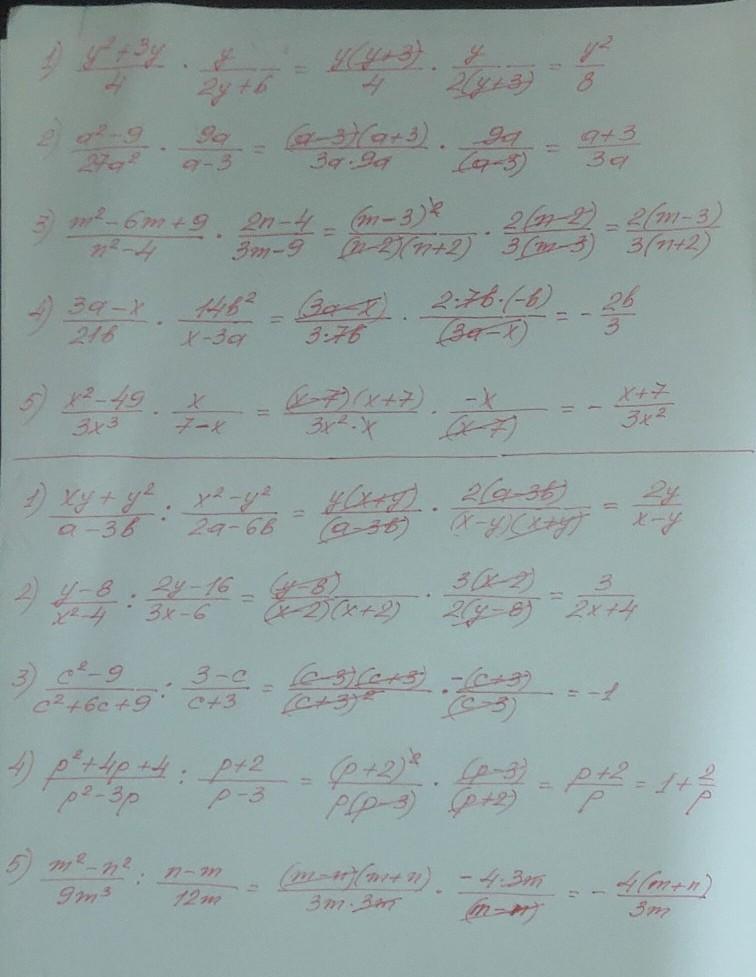 1) (y²+3y)/4 · y/(2y+6) = y(y+3)/4 · y/2(y+3) = y²/8
2) (a²-9)/27a² · 9a/(a-3) = (a-3)(a+3)/3a·9a · 9a/(a-3) = (a+3)/3a
3) (m²-6m+9)/(n²-4) · (2n-4)/(3m-9) = (m-3)²/(n-2)(n+2) · 2(n-2)/3(m-3) = 2(m-3)/3(n+2)
4) (3a-x)/21b · 14b²/(x-3a) = (3a-x)/3·7b · 2·7b·(-b)/(3a-x) = - 2b/3
5) (x²-49)/3x³ · x/(7-x) = (x-7)(x+7)/3x²·x · -x/(x-7) = - (x+7)/3x²
1) (xy+y²)/(a-3b) : (x²-y²)/(2a-6b) = y(x+y)/(a-3b) · 2(a-3b)/(x-y)(x+y) = 2y/(x-y)
2) (y-8)/(x²-4) : (2y-16)/(3x-6) = (y-8)/(x-2)(x+2) · 3(x-2)/2(y-8) = 3/(2x+4)
3) (c²-9)/(c²+6c+9) : (3-c)/(c+3) = (c-3)(c+3)/(c+3)² · -(c+3)/(c-3) = -1
4) (p²+4p+4)/(p²-3p) : (p+2)/(p-3) = (p+2)²/p(p-3) · (p-3)/(p+2) = (p+2)/p = 1+2/p
5) (m²-n²)/9m³ : (n-m)/12m = (m-n)(m+n)/3m·3m · -4·3m/(m-n) = - 4(m+n)/3m